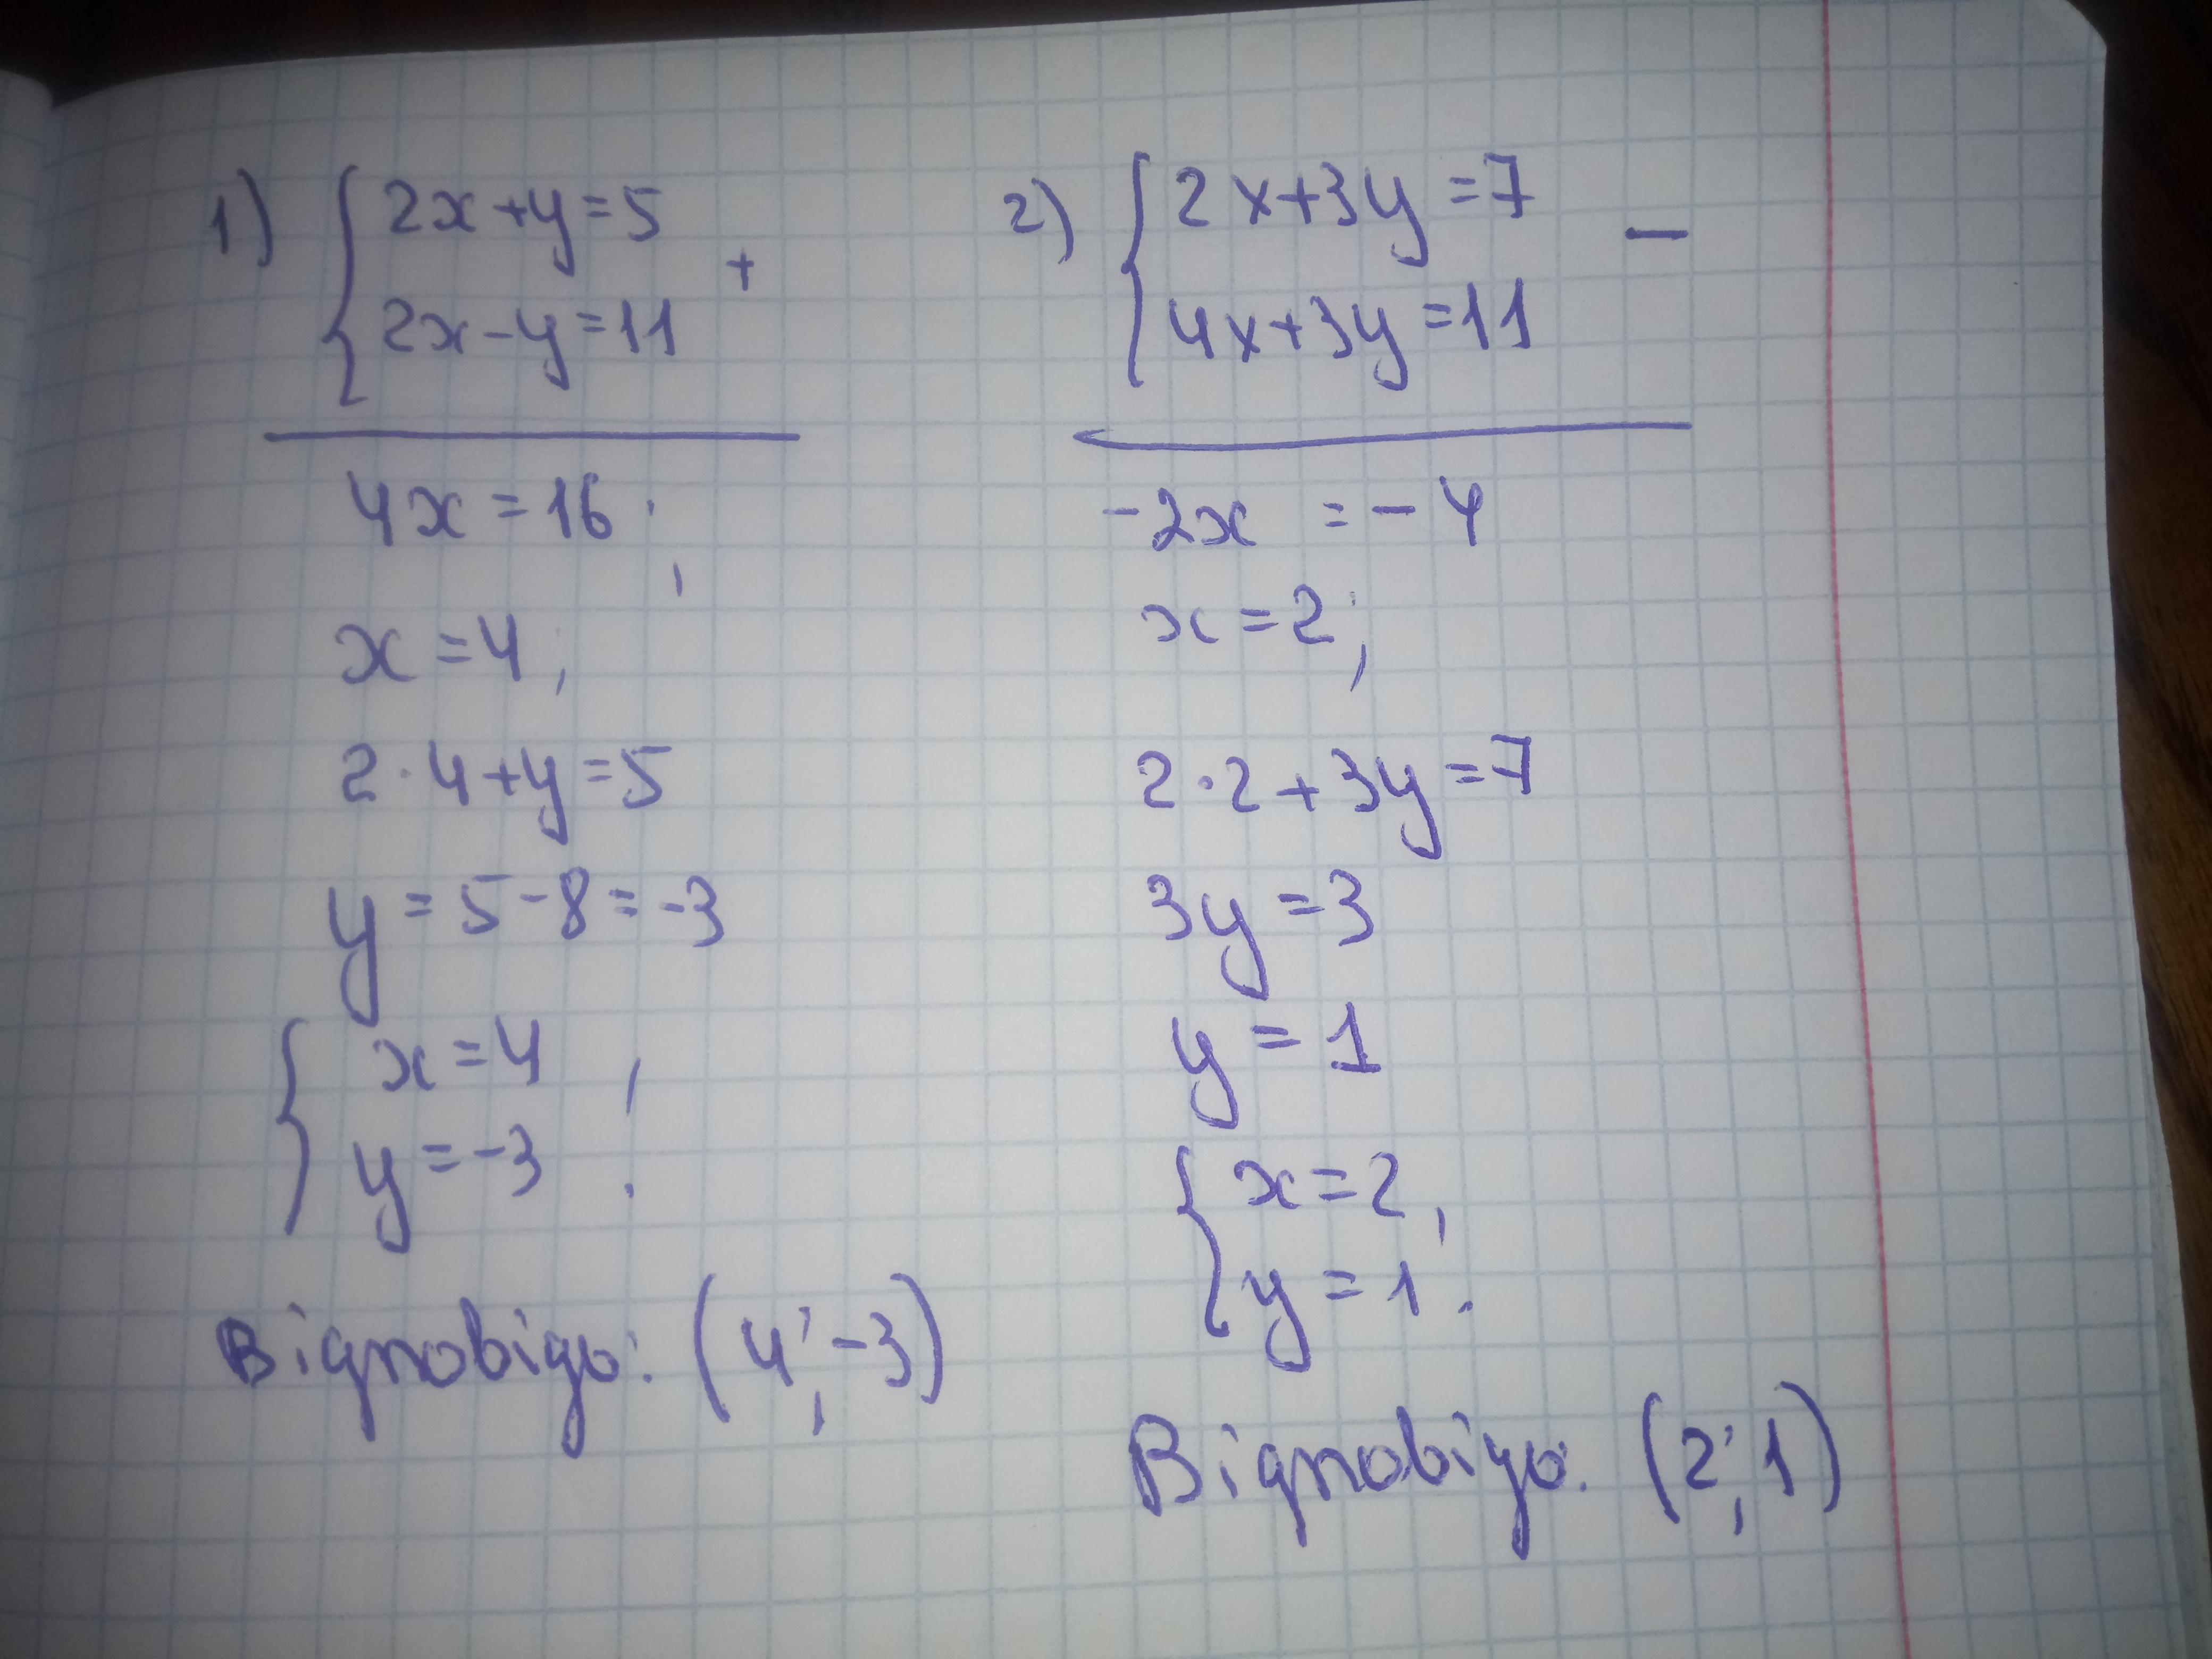 1) { 2x+y=5
2x-y=11 +
4x=16;
x=4;
2·4+y=5
y=5-8=-3
{ x=4,
y=-3.
Відповідь: (4;-3)
2) { 2x+3y=7 −
4x+3y=11
-2x =-4
x=2;
2·2+3y=7
3y=3
y=1
{ x=2,
y=1.
Відповідь: (2;1)